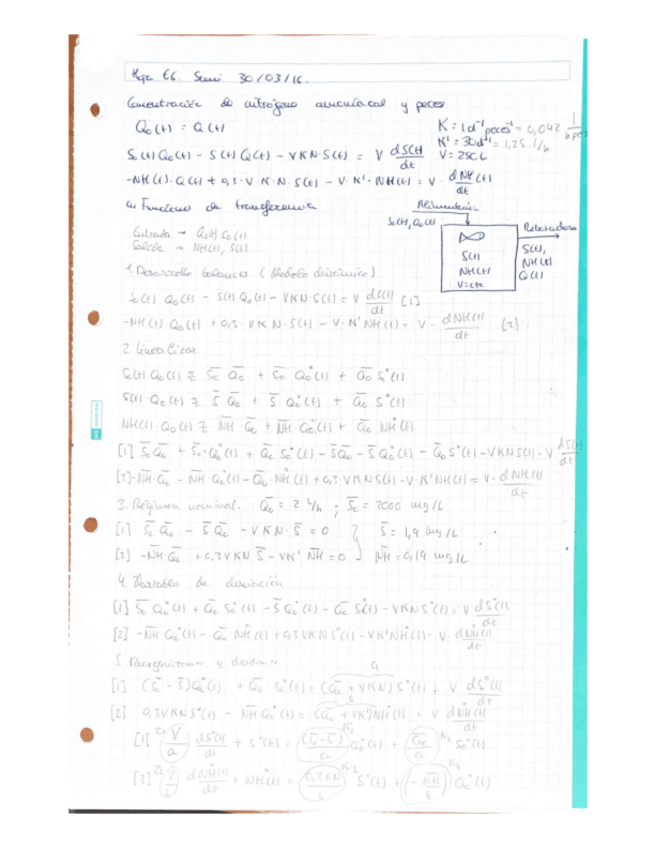 Hoja E6. Semi 30/03/16.
Concentración de nitrógeno amoniacal y peces
Q₀(t) = Q(t)
K = 1 d⁻¹ peces⁻¹ = 0,042
K' = 30 d⁻¹ = 1,25 1/h
V = 250 L
S₀(t) Q₀(t) - S(t) Q(t) - VKN·S(t) = V dS(t)/dt
-NH(t)·Q(t) + 0,3·V·K·N·S(t) - V·K'·NH(t) = V· dNH(t)/dt
Funciones de transferencia
Alimentación
S₀(t), Q₀(t)
Rebosadero
S(t)
NH(t)
V=cte
S(t),
NH(t)
Q(t)
Entrada → Q₀(t) S₀(t)
Salida → NH(t), S(t)
1. Desarrollo balances (Modelo dinámico)
S₀(t) Q₀(t) - S(t) Q₀(t) - VKN·S(t) = V dS(t)/dt [1]
-NH(t)·Q₀(t) + 0,3·VKN·S(t) - V·K'NH(t) = V· dNH(t)/dt [2]
2. Linealizar
S₀(t) Q₀(t) ≈ S̄₀ Q̄₀ + S̄₀ Q₀*(t) + Q̄₀ S₀*(t)
S(t)·Q₀(t) ≈ S̄ Q̄₀ + S̄ Q₀*(t) + Q̄₀ S*(t)
NH(t)·Q₀(t) ≈ N̄H̄·Q̄₀ + N̄H̄ Q₀*(t) + Q̄₀ NH*(t)
[1] S̄₀Q̄₀ + S̄₀·Q₀*(t) + Q̄₀ S₀*(t) - S̄Q̄₀ - S̄ Q₀*(t) - Q̄₀ S*(t) - VKN S(t) = V dS(t)/dt
[2] -N̄H̄ Q̄₀ - N̄H̄ Q₀*(t) - Q̄₀·NH*(t) + 0,3 VKN S(t) - V·K'NH(t) = V· dNH(t)/dt
3. Régimen nominal. Q̄₀ = 2 L/h ; S̄₀ = 2000 mg/L
[1] S̄₀ Q̄₀ - S̄ Q̄₀ - VKN·S̄ = 0 } S̄ = 1,9 mg/L
[2] -N̄H̄·Q̄₀ + 0,3VKN S̄ - VK' N̄H̄ = 0 } N̄H̄ = 0,19 mg/L
4. Variables de desviación
[1] S̄₀ Q₀*(t) + Q̄₀ S₀*(t) - S̄ Q₀*(t) - Q̄₀ S*(t) - VKN S*(t) = V dS*(t)/dt
[2] -N̄H̄ Q₀*(t) - Q̄₀ NH*(t) + 0,3 VKN S*(t) - VK'NH*(t) = V· dNH*(t)/dt
5. Reorganizamos y dividimos
[1] (S̄₀ - S̄)Q₀*(t) + Q̄₀ S₀*(t) = (Q̄₀ + VKN) S*(t) + V dS*(t)/dt
a
[2] 0,3VKN S*(t) - N̄H̄ Q₀*(t) = (Q̄₀ + VK')NH*(t) + V dNH*(t)/dt
b
[1] V/a dS*(t)/dt + S*(t) = (S̄₀-S̄)/a Q₀*(t) + Q̄₀/a S₀*(t)
K₁
[2] V/b dNH*(t)/dt + NH*(t) = 0,3VKN/b S*(t) + (-N̄H̄/b) Q₀*(t)
K₃ K₄